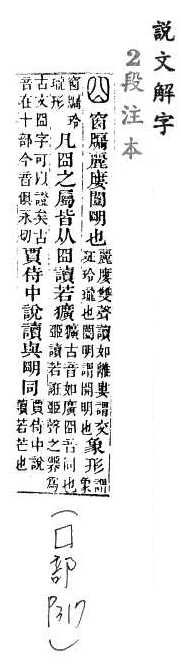 說文解字
2段注本
囧 窗牖麗廔闓明也 麗廔雙聲讀如離婁謂交疏玲瓏也闓明謂開明也 象形 謂象
窗牖玲瓏形 凡囧之屬皆从囧讀若獷 獷古音如廣囧音同也臦讀若誑臦聲之臩爲
古文囧字可以證矣古音在十部今音俱永切 賈侍中說讀與明同 賈侍中說讀若芒也
(囗部 P317)